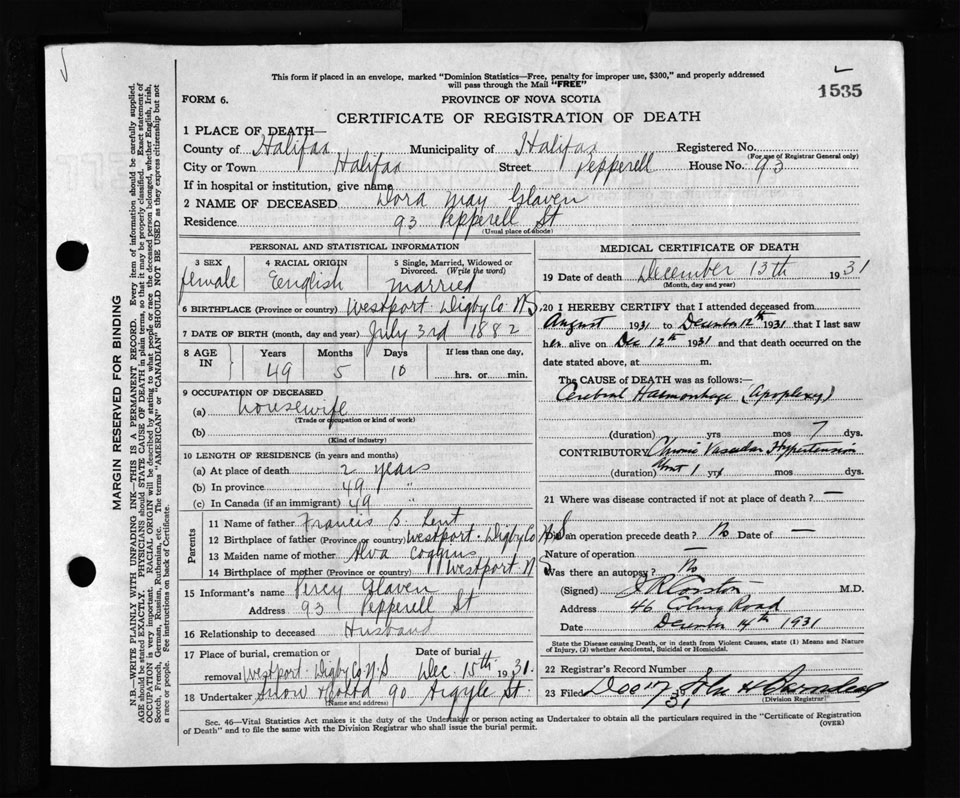 This form if placed in an envelope, marked "Dominion Statistics—Free, penalty for improper use, $300," and properly addressed
will pass through the Mail "FREE"
1535
FORM 6.
PROVINCE OF NOVA SCOTIA
CERTIFICATE OF REGISTRATION OF DEATH
1 PLACE OF DEATH—
County of Halifax Municipality of Halifax Registered No.
(For use of Registrar General only)
City or Town Halifax Street Pepperell House No. 93
If in hospital or institution, give name
2 NAME OF DECEASED Dora May Glaven
Residence 93 Pepperell St
(Usual place of abode)
PERSONAL AND STATISTICAL INFORMATION
3 SEX 4 RACIAL ORIGIN 5 Single, Married, Widowed or Divorced. (Write the word)
female English married
6 BIRTHPLACE (Province or country) Westport Digby Co. N.S.
7 DATE OF BIRTH (month, day and year) July 3rd 1882
8 AGE IN Years Months Days If less than one day,
49 5 10 hrs. or min.
9 OCCUPATION OF DECEASED
(a) housewife
(Trade or occupation or kind of work)
(b)
(Kind of industry)
10 LENGTH OF RESIDENCE (in years and months)
(a) At place of death 2 years
(b) In province 49 "
(c) In Canada (if an immigrant) 49 "
Parents
11 Name of father Francis B. Lent
12 Birthplace of father (Province or country) Westport. Digby Co N.S
13 Maiden name of mother Alva Coggins
14 Birthplace of mother (Province or country) Westport N S
15 Informant's name Percy Glaven
Address 93 Pepperell St
16 Relationship to deceased Husband
17 Place of burial, cremation or removal Westport. Digby Co N.S Date of burial Dec. 15th 1931.
18 Undertaker Snow 90 Argyle St.
(Name and address)
MEDICAL CERTIFICATE OF DEATH
19 Date of death December 13th 1931
(Month, day and year)
20 I HEREBY CERTIFY that I attended deceased from
August 1931 to December 12th 1931 that I last saw
her alive on Dec 12th 1931 and that death occurred on the
date stated above, at m.
The CAUSE OF DEATH was as follows:—
Cerebral Haemorrhage (Apoplexy)
(duration) yrs mos 7 dys.
CONTRIBUTORY Chronic Vascular Hypertension
(duration) about 1 yrs mos dys.
21 Where was disease contracted if not at place of death? —
Did an operation precede death? No Date of —
Nature of operation —
Was there an autopsy? No
(Signed) M.D.
Address 46 Coburg Road
Date December 14th 1931
State the Disease causing Death, or in death from Violent Causes, state (1) Means and Nature
of Injury, (2) whether Accidental, Suicidal or Homicidal.
22 Registrar's Record Number
23 Filed 31 John
(Division Registrar)
Sec. 46—Vital Statistics Act makes it the duty of the Undertaker or person acting as Undertaker to obtain all the particulars required in the "Certificate of Registration
of Death" and to file the same with the Division Registrar who shall issue the burial permit.
(OVER)
MARGIN RESERVED FOR BINDING
N.B.—WRITE PLAINLY WITH UNFADING INK—THIS IS A PERMANENT RECORD. Every item of information should be carefully supplied.
AGE should be stated EXACTLY. PHYSICIANS should STATE CAUSE OF DEATH in plain terms, so that it may be properly classified. Exact statement of
OCCUPATION is very important. RACIAL ORIGIN will be described by stating to what people or race the deceased person belonged, whether English, Irish,
Scotch, French, German, Russian, Ruthenian, etc. The terms "AMERICAN" or "CANADIAN" SHOULD NOT BE USED as they express citizenship but not
a race or people. See instructions on back of Certificate.